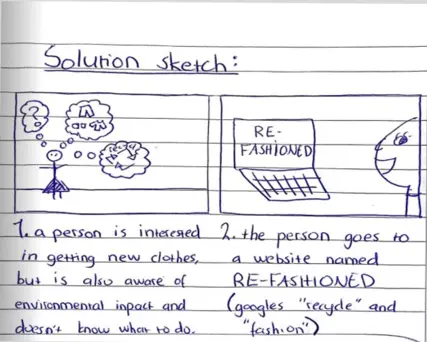 Solution sketch:
?
recycle
RE-
FASHIONED
1. a person is interested
in getting new clothes,
but is also aware of
environmental inpact and
doesn't know what to do.
2. the person goes to
a website named
RE-FASHIONED
(googles "recycle" and
"fashion")